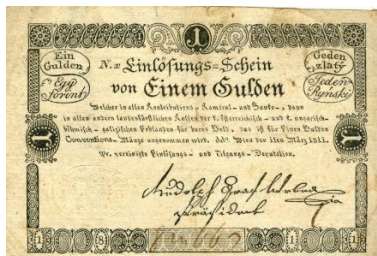 1
Ein
Gulden
Egy
forint
N.º Einlösungs=Schein
von Einem Gulden
Geden
zlatý
Jeden
Ryński
Welcher in allen Contributions-, Kameral- und Banko-, dann
in allen andern landesfürstlichen Kassen der k. österreichisch- und k. ungarisch-
böhmisch- galizischen Erblanden für baares Geld, das ist für Einen Gulden
Conventions-Münze angenommen wird. Wien den 1ten März 1811.
Pr. vereinigte Einlösungs- und Tilgungs-Deputation.
Rudolph Graf
Präsident
1 8 1 1